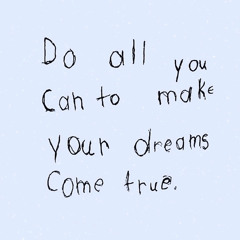 Do all you
Can to make
your dreams
Come true.